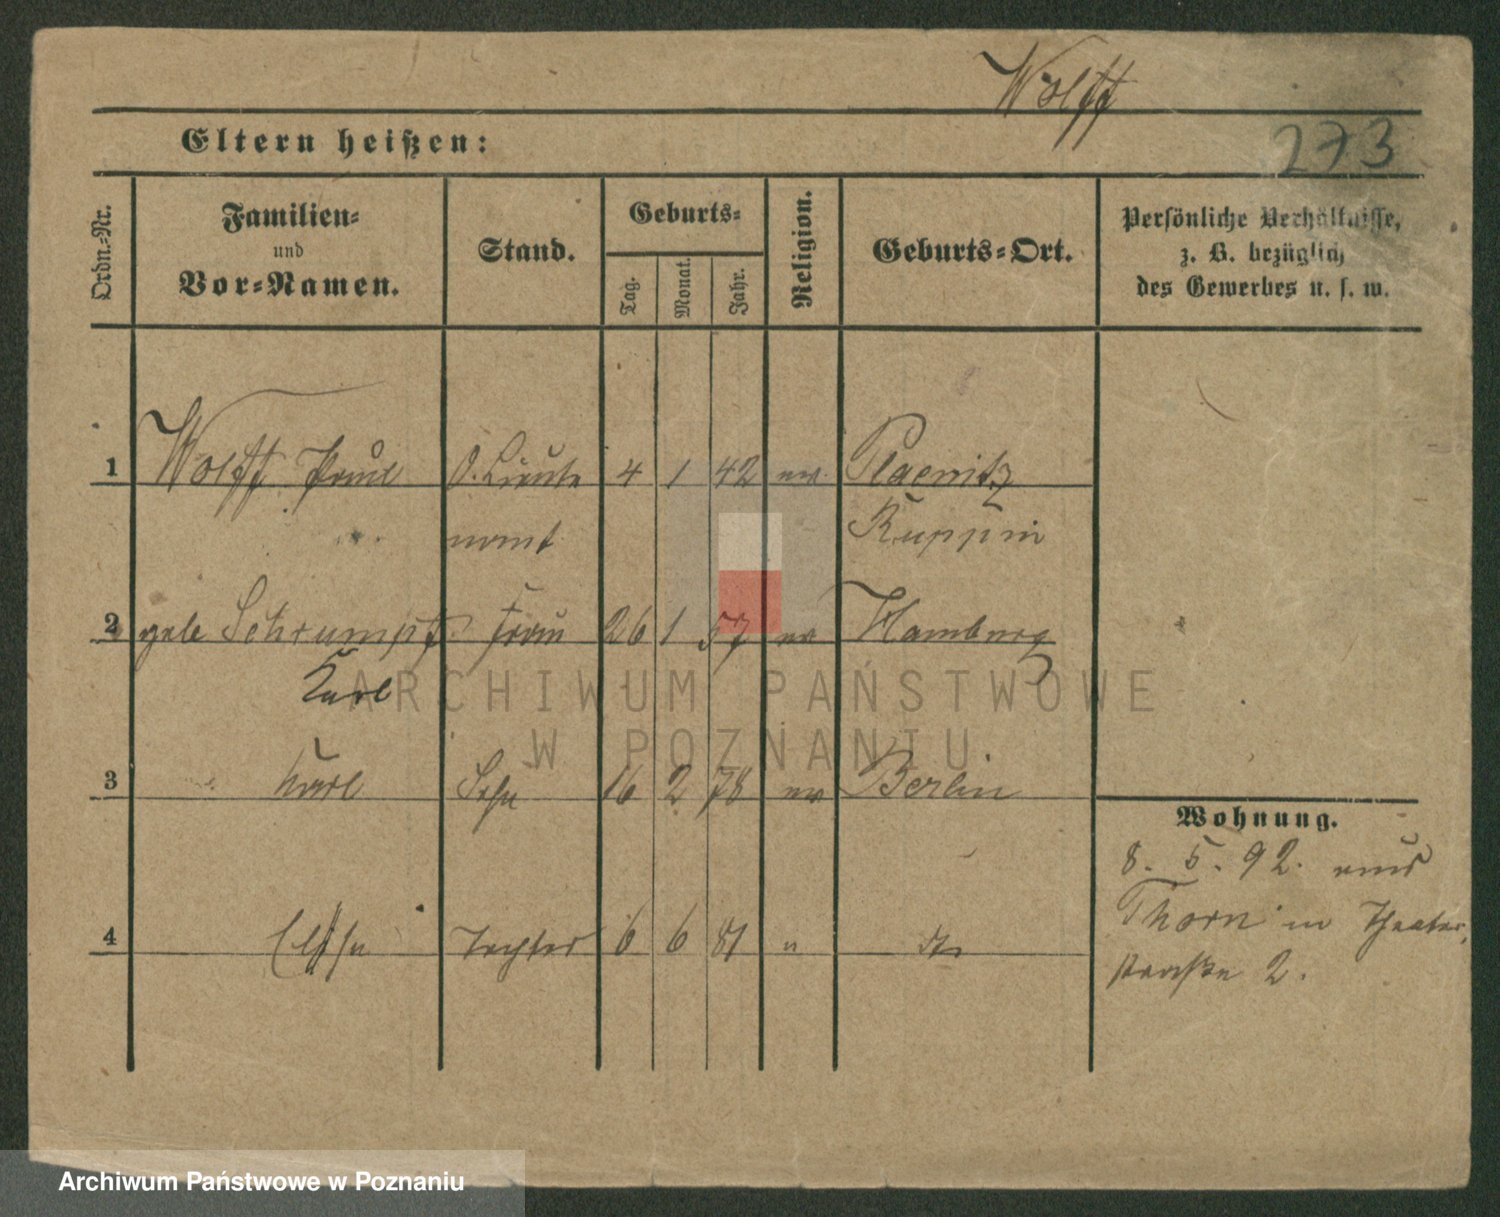 Wolff
273
Eltern heißen:
Ordn.-Nr.
Familien-
und
Vor-Namen.
Stand.
Geburts-
Tag.
Monat.
Jahr.
Religion.
Geburts-Ort.
Persönliche Verhältnisse,
z. B. bezüglich
des Gewerbes u. s. w.
1 Wolff Paul O. Lieute 4 1 42 ev.
nant Ruppin
2 Schrumpf Frau 26 1 57 ev Hamburg
3 Karl Sohn 16 2 78 ev Berlin
4 Tochter 6 6 81 "
Wohnung.
8. 5. 92. aus
Thorn in Theater
straße 2.
ARCHIWUM PAŃSTWOWE
W POZNANIU
Archiwum Państwowe w Poznaniu